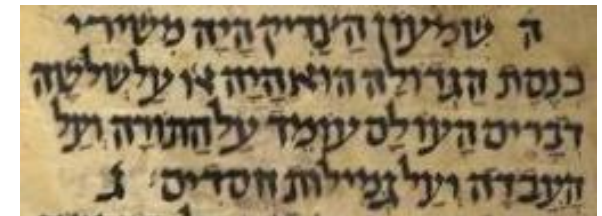 ה שמעון הצדיק היה משירי
כנסת הגדולה הוא היה או על שלשה
דברים העולם עומד על התורה ועל
העבדה ועל גמילות חסדים ג